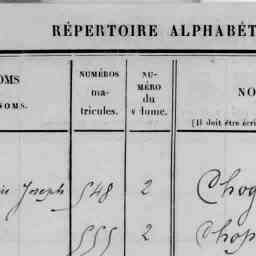 RÉPERTOIRE ALPHABÉT
OMS
NOMS.
NUMÉROS
ma-
tricules.
NU-
MÉRO
du
volume.
NO
(Il doit être écri
Joseph 548 2 Chog
555 2 Chop